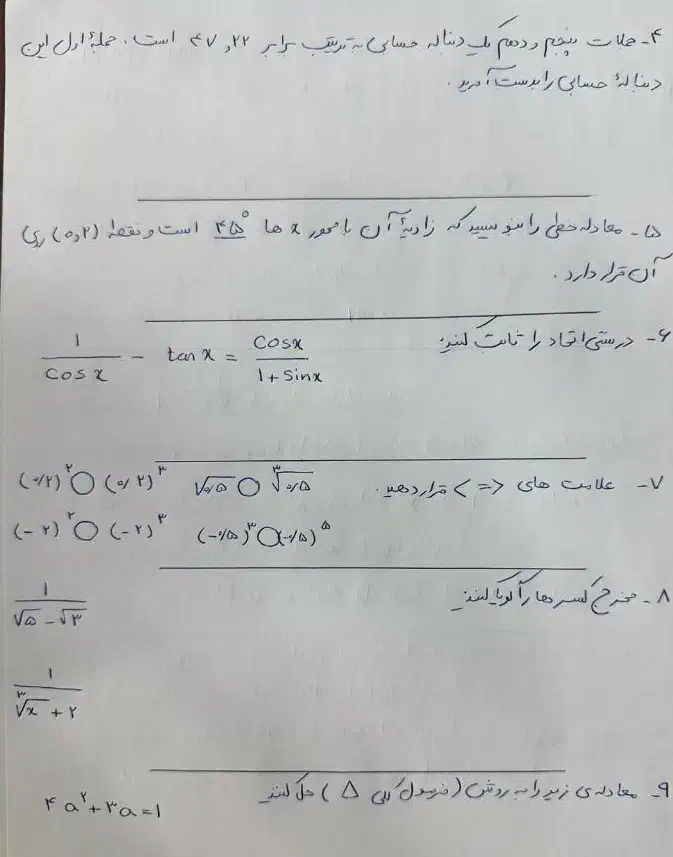 ۴- جملات پنجم و دهم یک دنباله حسابی به ترتیب برابر ۲۲ و ۴۷ است. جملهٔ اول این
دنبالهٔ حسابی را بدست آورید.
۵- معادله خطی را بنویسید که زاویهٔ آن با محور x ها ۴۵° است و نقطه (۰و۲) روی
آن قرار دارد.
۶- درستی اتحاد را ثابت کنید:
1/cos x - tan x = cos x/(1 + sin x)
۷- علامت های <=> قرار دهید.
(۰/۲)^۲ ○ (۰/۲)^۳ √۰/۵ ○ ∛۰/۵
(-۲)^۲ ○ (-۲)^۳ (-۰/۵)^۳ ○ (-۰/۵)^۵
۸- مخرج کسرها را گویا کنید
1/(√۵ - √۳)
1/(∛x + ۲)
۹- معادله‌ی زیر را به روش (فرمول کلی Δ) حل کنید
۴a^۲ + ۳a = 1